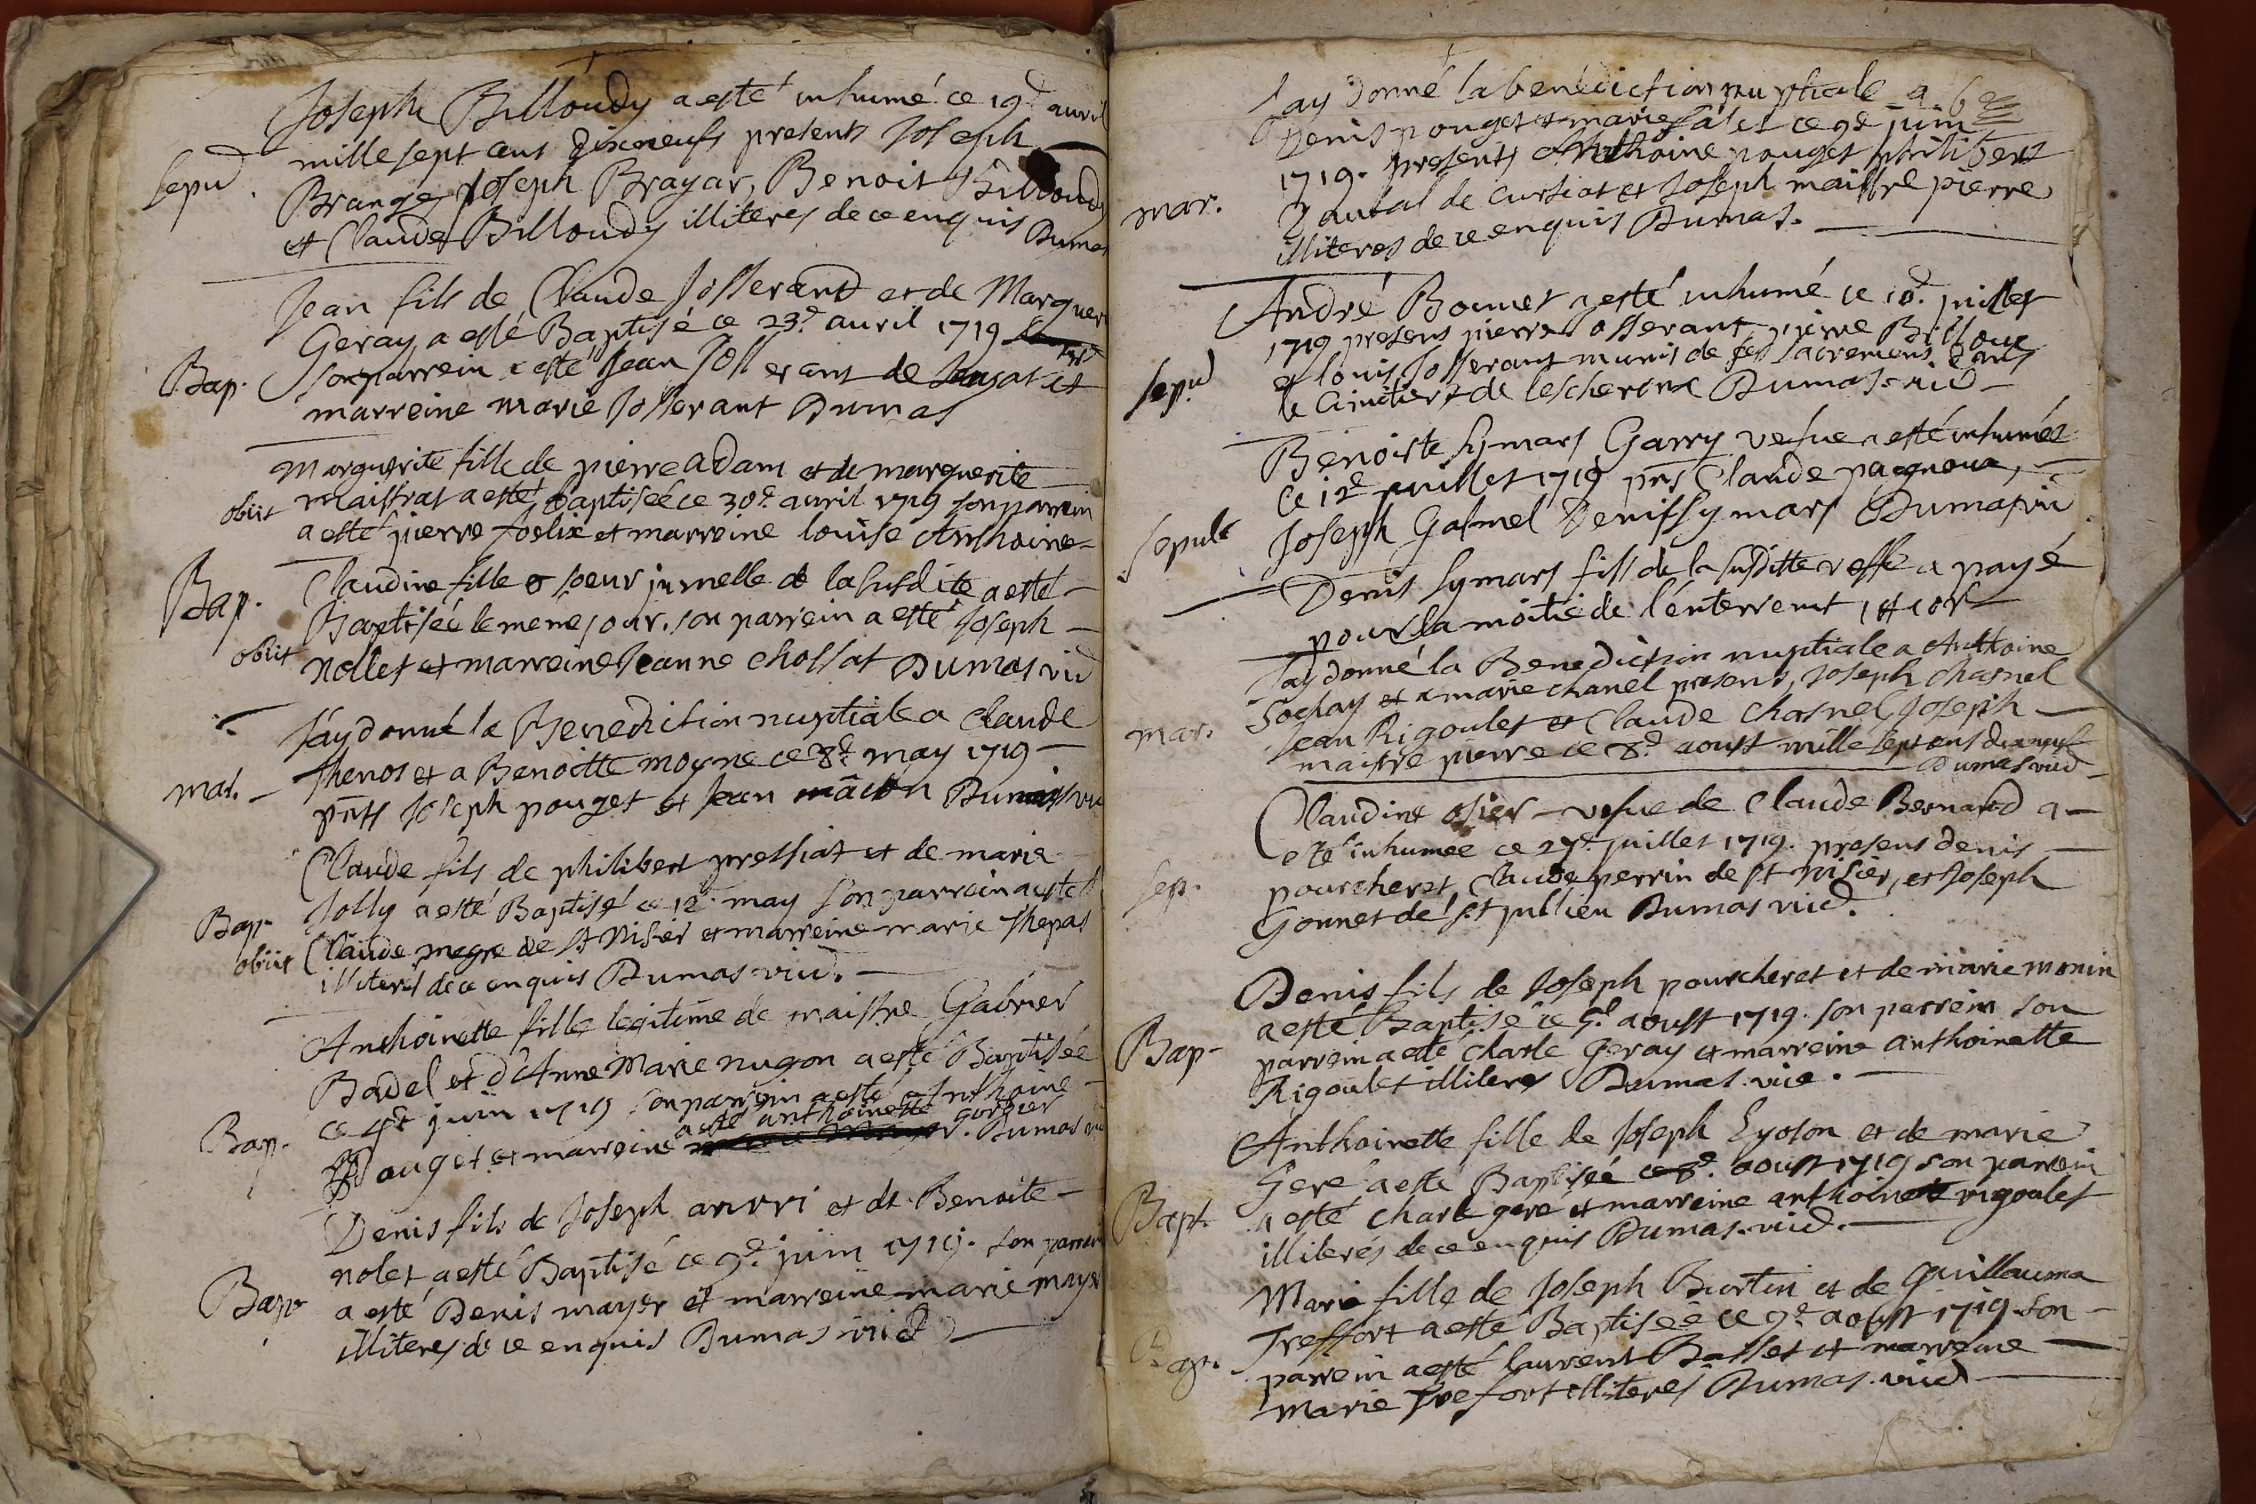 Joseph Billoudy a esté inhumé ce 19d avril
mille sept cens dixneufs presents Joseph
sepud.
Brange, Joseph Brayar, Benoit Billoudy
et Claude Billoudy illiteres de ce enquis Dumas
Jean fils de Claude Josserand et de Marguer
Geray a esté Baptisé ce 23d. avril 1719
Bap.
son parrein a esté Jean Josserant de et
marreine marie Josserant Dumas
Marguerite fille de pierre adam et de marguerite
obiit
maistras a esté baptiseé ce 30d. avril 1719 son parrein
a esté pierre foelix et marreine louise Anthoine
Bap.
Claudine fille & soeur jumelle de la susdite a esté
Baptiseé le meme jour. son parrein a esté Joseph
obiit
Nollet et marreine Jeanne chossat Dumas vic
J'ay donné la Benediction nuptiale a Claude
mar.
Thenos et a Benoitte moyne ce 8d. may 1719
pnts Joseph pouget et Jean Dumas vic
Claude fils de philibert pressiat et de marie
Jolly a esté Baptisé ce 12d. may son parrein a esté
Bap.
Claude megre de St Nisier et marreine marie Thepas
obiit
illiterés de ce enquis Dumas vicd.
Anthoinette fille legitime de maistre Gabriel
Badel et d'Anne Marie nugon a esté Baptisée
ce 4d juin 1719 son parrein a esté Anthoine
Bap.
pouget et marreine a esté anthoinette gorgier Dumas vic
Denis fils de Joseph anvri et de Benoite
nolet a esté Baptisé ce 9d. juin 1719. son parrein
Bap
a esté Denis mayer et marreine marie mayer
illiteres de ce enquis Dumas vicd
J'ay donné la benediction nuptiale a
Denis pouget et marie ce 9d juin
1719. presents Anthoine pouget philibert
mar.
de Curtiat et Joseph maistre pierre
illiteres de ce enquis Dumas.
André Bonnet a esté inhumé ce 10d. juillet
1719 presens pierre Josserant pierre Billoux
et louis Josserant munis de ses sacremens dans
sepd
le cimetiere de lescheroux Dumas vicd
Benoiste symars Garry vesue a esté inhumée
ce 12d juillet 1719 pns Claude pagnoux,
sepult
Joseph Gasmel Denis symars Dumas vic
Denis symars fils de la susditte vesfe a payé
pour la moitié de l'enterremt 1 tt 10 s
J'ay donné la Benediction nuptiale a Anthoine
Sochay et a marie chanel presens, Joseph chasnel
mar.
Jean Rigoulet et Claude Chasnel Joseph
maistre pierre ce 8d. aoust mille sept cens dixneuf
Dumas vicd
Claudine osier vesue de Claude Bernard a
eté inhumee ce 27d. juillet 1719. presens denis
sep.
pourcheret, Claude perrin de St nisier, et Joseph
Gonnet de St jullien Dumas vicd.
Denis fils de Joseph pourcheret et de marie monin
a esté Baptisé ce 5d aoust 1719. son parrein son
Bap
parrein a esté charle geray et marreine anthoinette
Rigoulet illiteres Dumas vic.
Anthoinette fille de Joseph Eyoson et de marie
Geré a esté Baptiseé ce 8d. aoust 1719 son parrein
Bapt.
a esté charle geré et marreine anthoinette rigoulet
illiterés de ce enquis Dumas vicd.
Marie fille de Joseph Burtin et de Guillauma
Treffort a esté Baptiseé ce 9d aoust 1719 son
Bap.
parrein a esté laurent Basset et marreine
marie Trefort illiteres Dumas vicd